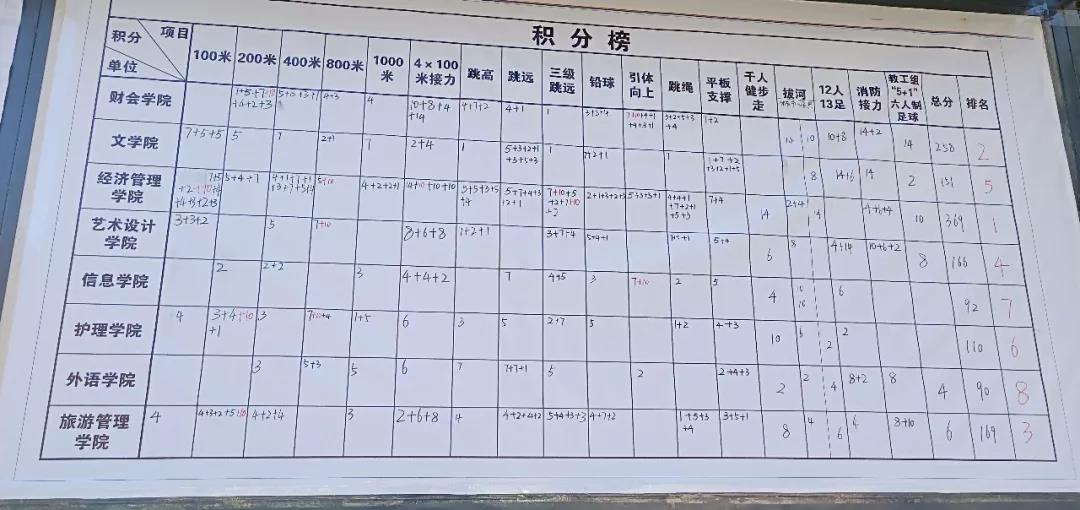 积分榜
积分 项目 单位 100米 200米 400米 800米 1000米 4×100米接力 跳高 跳远 三级跳远 铅球 引体向上 跳绳 平板支撑 千人健步走 拔河 12人13足 消防接力 教工组"5+1"六人制足球 总分 排名
财会学院 4+3 4 10+8+4+14 4+7+2 4+1 1 1+2 10 10 10+8 14+2 14 258 2
文学院 7+5+5 5 7 2+1 1 2+4 1 5+3+2+1+3+5+3 1 1 8 14+16 14 2 151 5
经济管理学院 5+4+1 5+10 4+2+2+1 4+10+10+10 3+5+3+5+4 5+7+4+3+2+1 7+4 14 2+4 14 10 369 1
艺术设计学院 3+3+2 5 7+10 8+6+8 1+2+1 3+7+4 5+4+1 5+4 6 8 4+14 10+6+2 8 166 4
信息学院 2 2+2 3 4+4+2 7 4+5 3 7+10 2 5 4 6 92 7
护理学院 4 3+4+10+1 3 7+10+4 1+5 6 3 5 2+7 5 1+2 4+3 10 6 2 2 110 6
外语学院 3 5+3 5 6 7 7+7+1 5 2 2+4+3 2 2 4 8+2 8 4 90 8
旅游管理学院 4 4+3+2+5+10 4+2+4 3 2+6+8 4 4+2+4+2 5+4+3+3 4+7+2 1+5+3+4 3+5+1 8 4 6 6 8+10 6 169 3